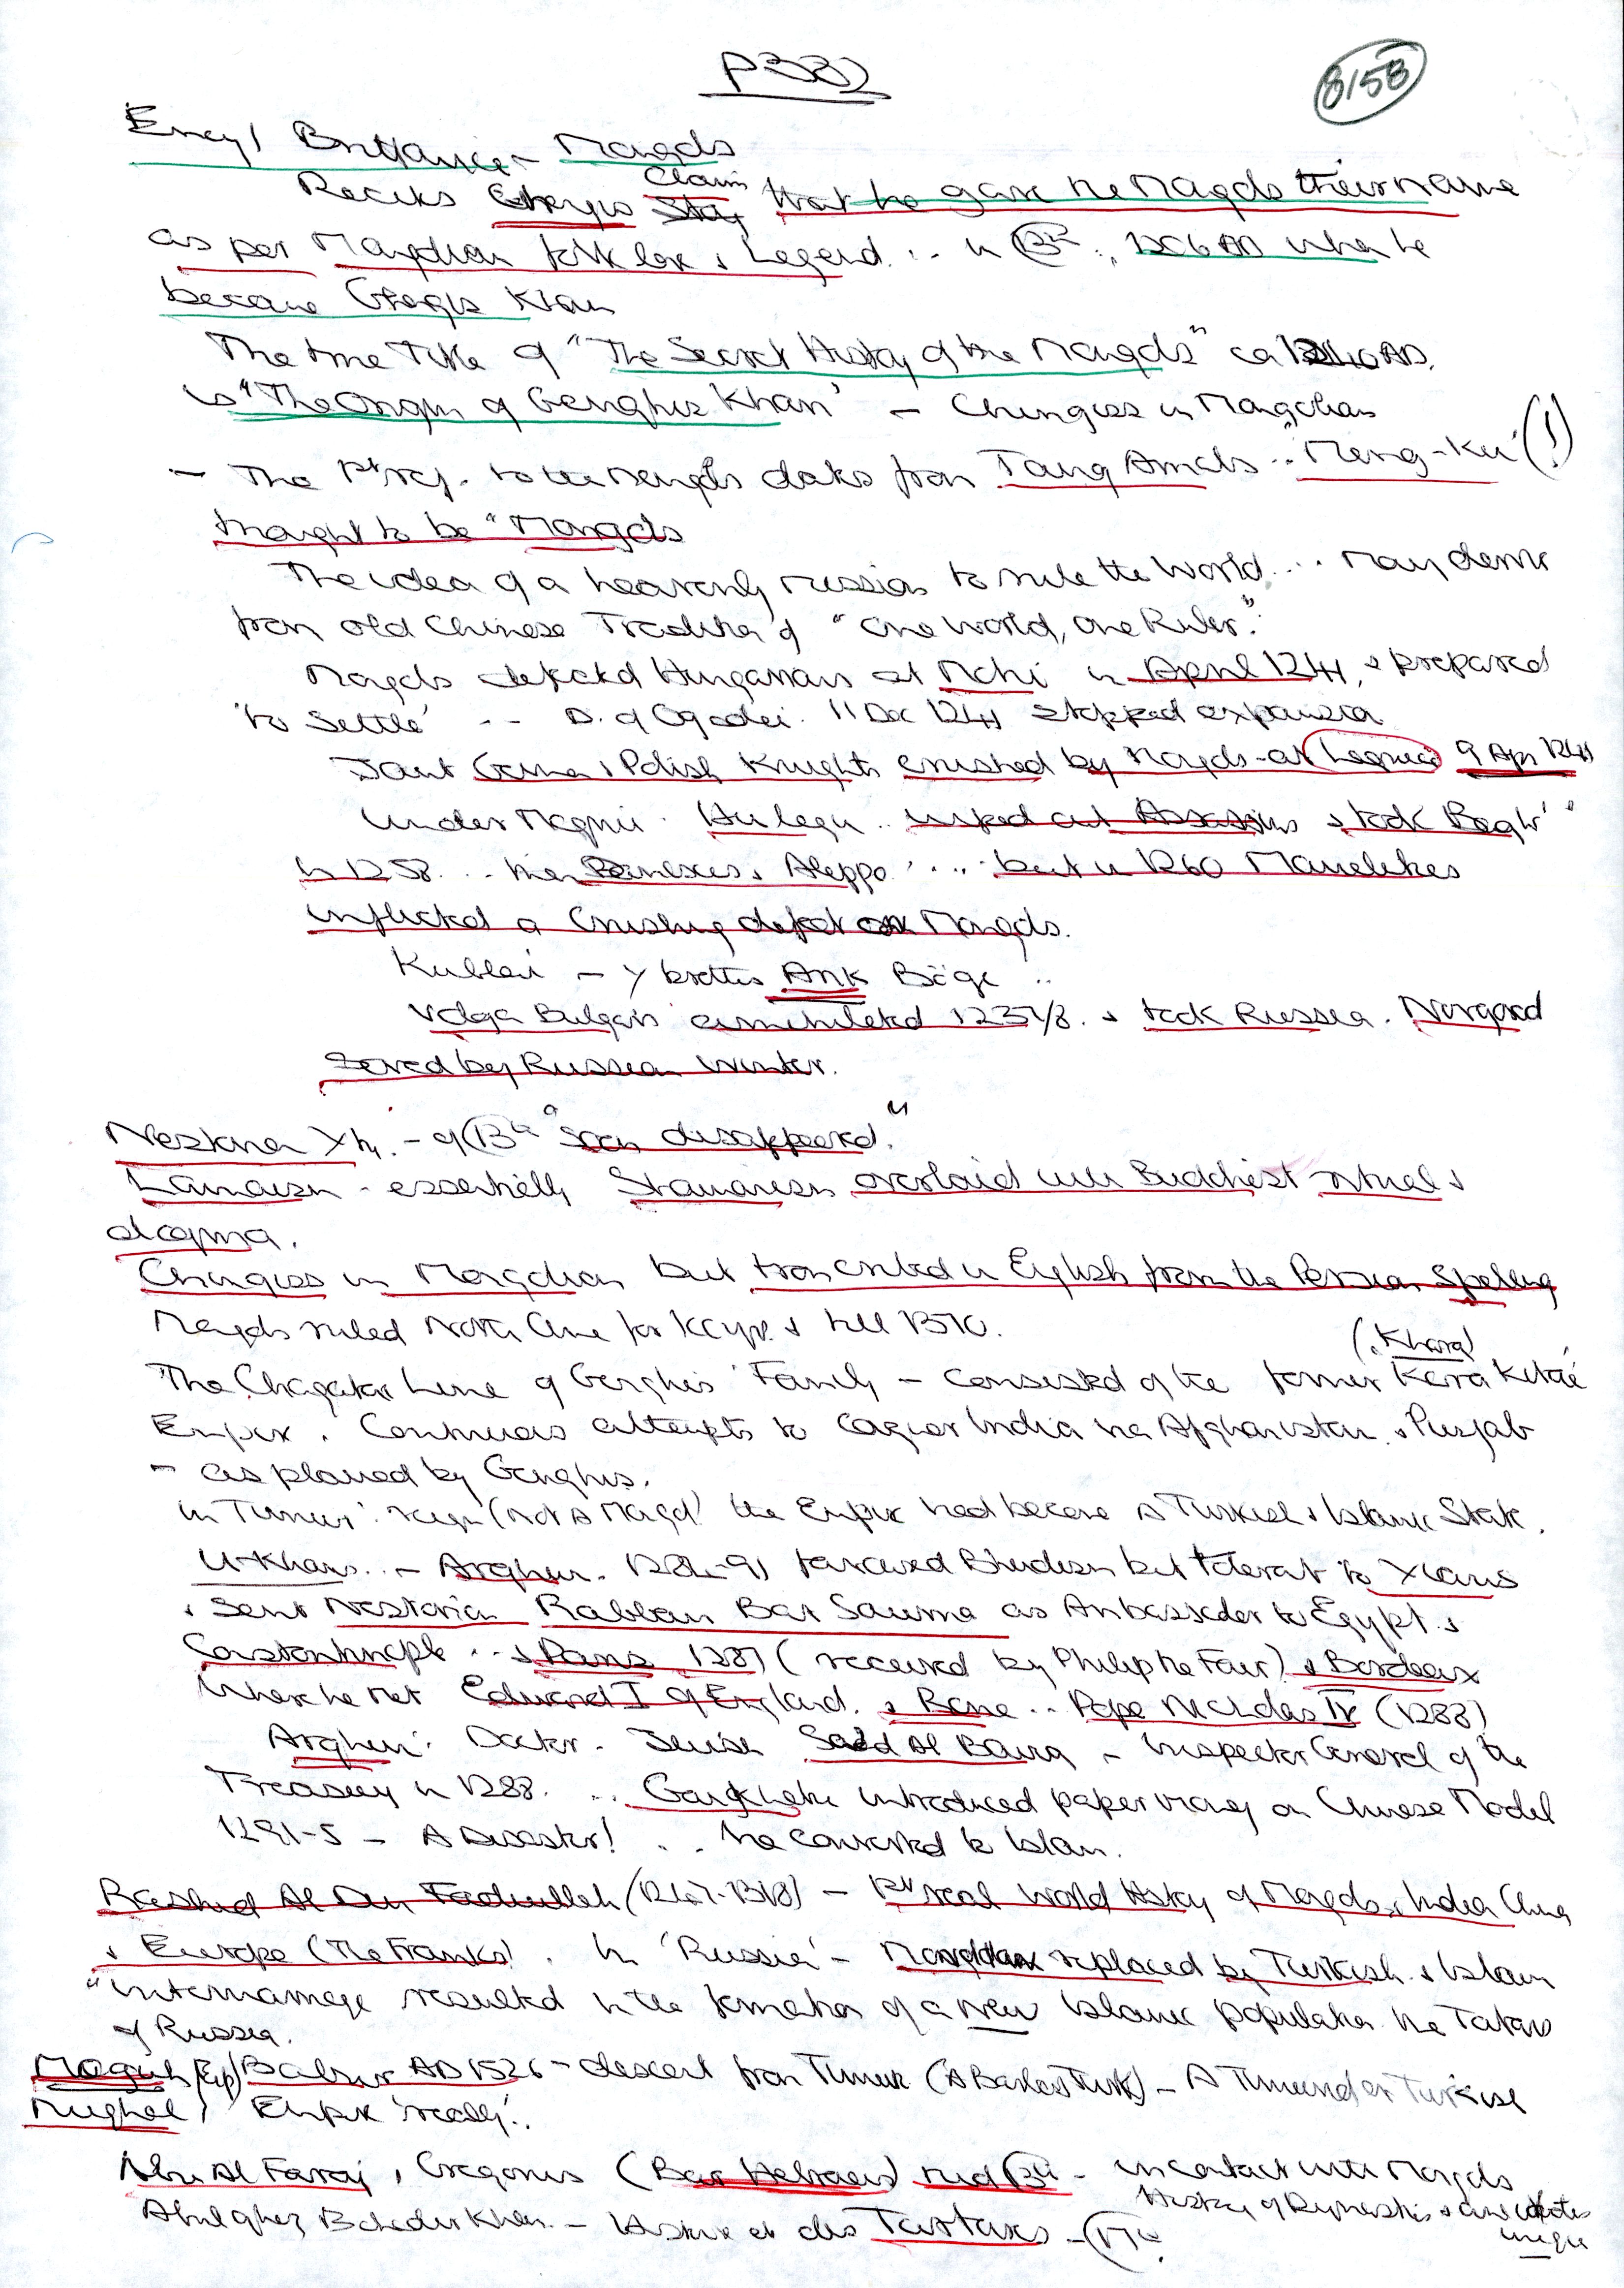 P332
8158
Encyl Brittanica - Mongols
Claim
that he gave the Mongols their name
as per Mongolian folk lore & Legend. .. in 13th .. 1206 AD when he
became Genghis Khan
The true Title of "The Secret History of the Mongols" ca 1240 AD.
is "The Origin of Genghis Khan" - Chingiss in Mongolian
- The 1st ref. to the Mongols dates from Tang Annals .. "Meng-Ku" (!)
thought to be "Mongols
The idea of a heavenly mission to rule the World ... may derive
from old Chinese Tradition of "One World, One Ruler."
Mongols defeated Hungarians at Mohi in April 1241, & prepared
'to settle' -- D. of Ogodei. 11 Dec 1241 stopped expansion
Joint German & Polish Knights crushed by Mongols - at Legnica 9 Apr 1241
Under Hulegu .. wiped out Assassins & took
in 1258. .. then Damascus & Aleppo .... but in 1260 Mamelukes
inflicted a crushing defeat on Mongols.
Kublai - y brother Arik Böge ..
Volga Bulgars annihilated 1237/8. & took Russia. Novgorod
saved by Russian Winter.
Nestorian Xty. - of 13th "soon disappeared."
Lamaism - essentially Shamanism overlaid with Buddhist ritual &
dogma.
Chingiss in Mongolian but transcribed in English from the Persian spelling
Mongols ruled North China for & till 1370.
(Khara)
The Chagatai Line of Genghis' Family - consisted of the former Kara Kitai
Empire. Continuous attempts to conquer India via Afghanistan & Punjab
- as planned by Genghis.
In Timur's reign (not a Mongol) the Empire had become a Turkish & Islamic State.
Il-Khans .. - Arghun. 1284-91 favoured Bhudism but tolerant to Xians
& sent Nestorian Rabban Bar Sauma as Ambassador to Egypt &
Constantinople ... & Paris 1287 (received by Philip the Fair) & Bordeaux
Where he met Edward I of England. & Rome .. Pope Nicholas IV (1288)
Arghun's Doctor - Jewish Sa'd Al Dawla - Inspector General of the
Treasury in 1288. ... introduced paper money on Chinese Model
1291-5 - A Disaster! ... he converted to Islam.
Rashid Al Din Fadlullah (1247-1318) - 1st real World History of Mongols, India China
& Europe (The Franks). In 'Russia' - Mongolian replaced by Turkish & Islam
"intermarriage resulted in the formation of a new Islamic population the Tatars
of Russia.
Moguls (Exp) Babur AD 1526 - descent from Timur (A Barlas Turk) - A Timurid or Turkish
Mughal Empire 'really'.
Abu Al Faraj, Gregorius (Bar Hebraeus) mid 13th - in contact with Mongols
History of Dynasties & anecdotes
Abulghazi Bahadur Khan. - Histoire et des Tartares - (17th